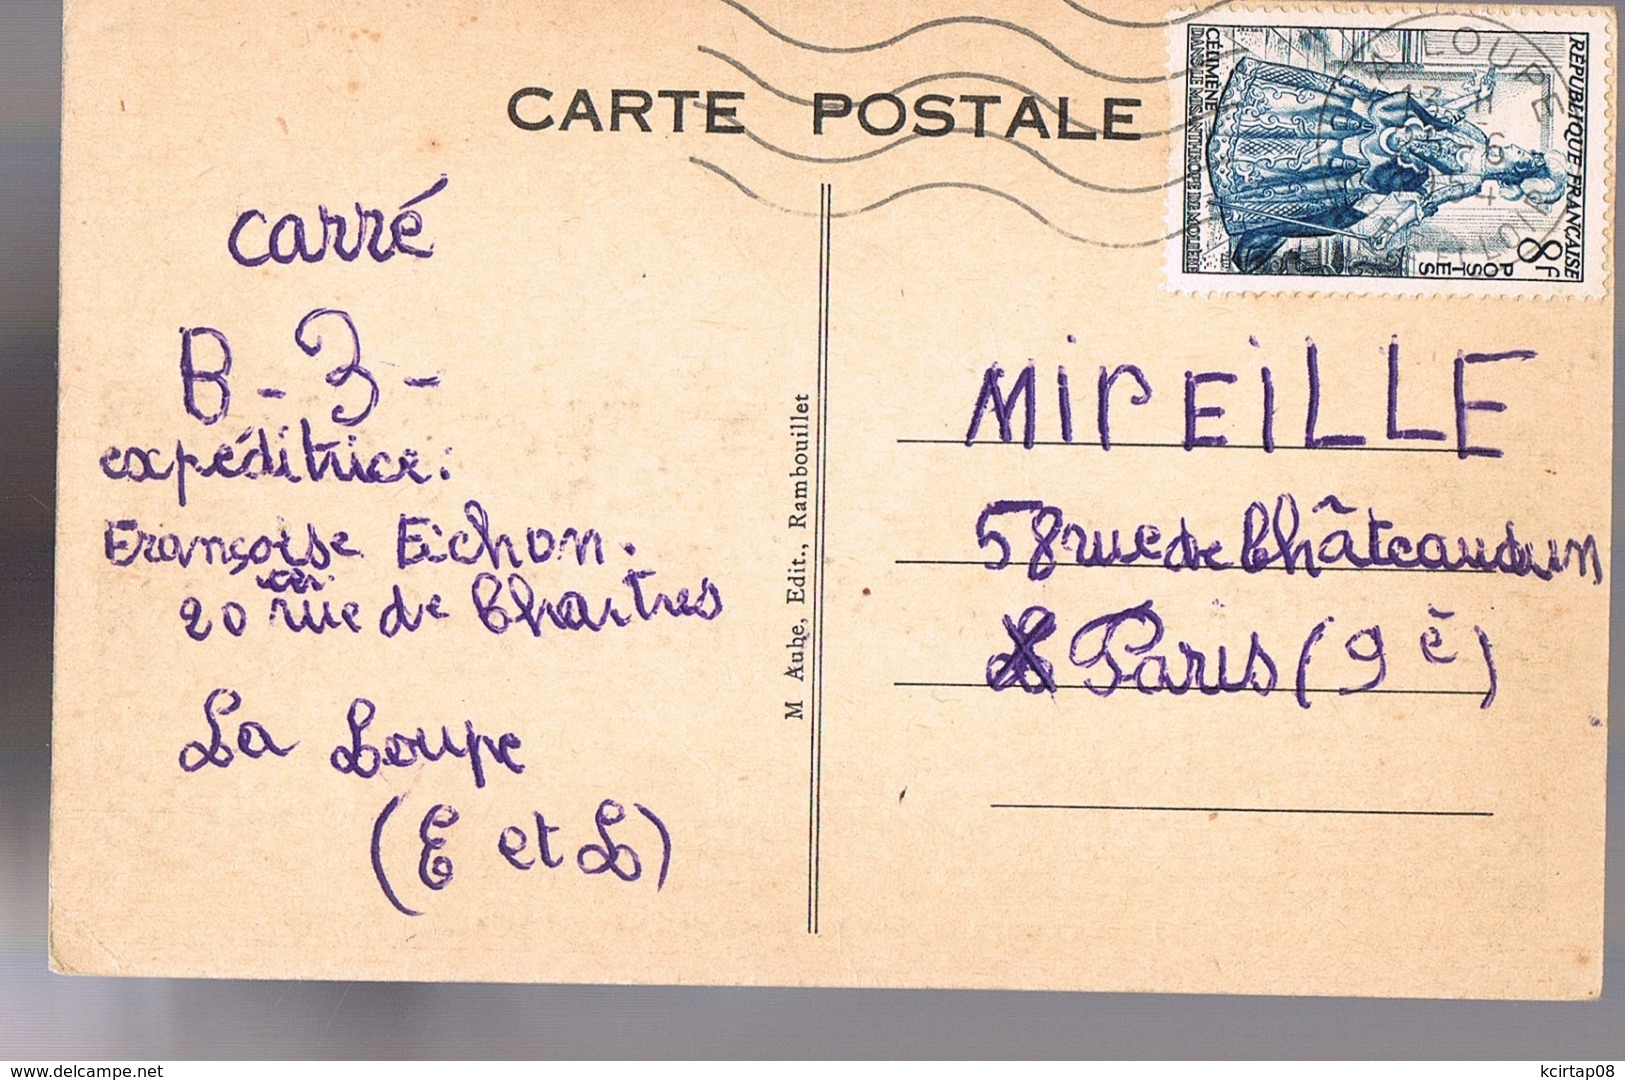 CARTE POSTALE
RÉPUBLIQUE FRANÇAISE
8F
POSTES
CÉLIMÈNE
DANS LE MISANTHROPE DE MOLIÈRE
LA LOUPE
13 H
-6
ET LOIR
carré
B - 3 -
expéditrice :
Françoise Eichon.
20 rue de Chartres
La Loupe
(E et L)
M Aube, Edit., Rambouillet
MIREILLE
58 rue de Châteaudun
Paris (9è)
kcirtap08
www.delcampe.net